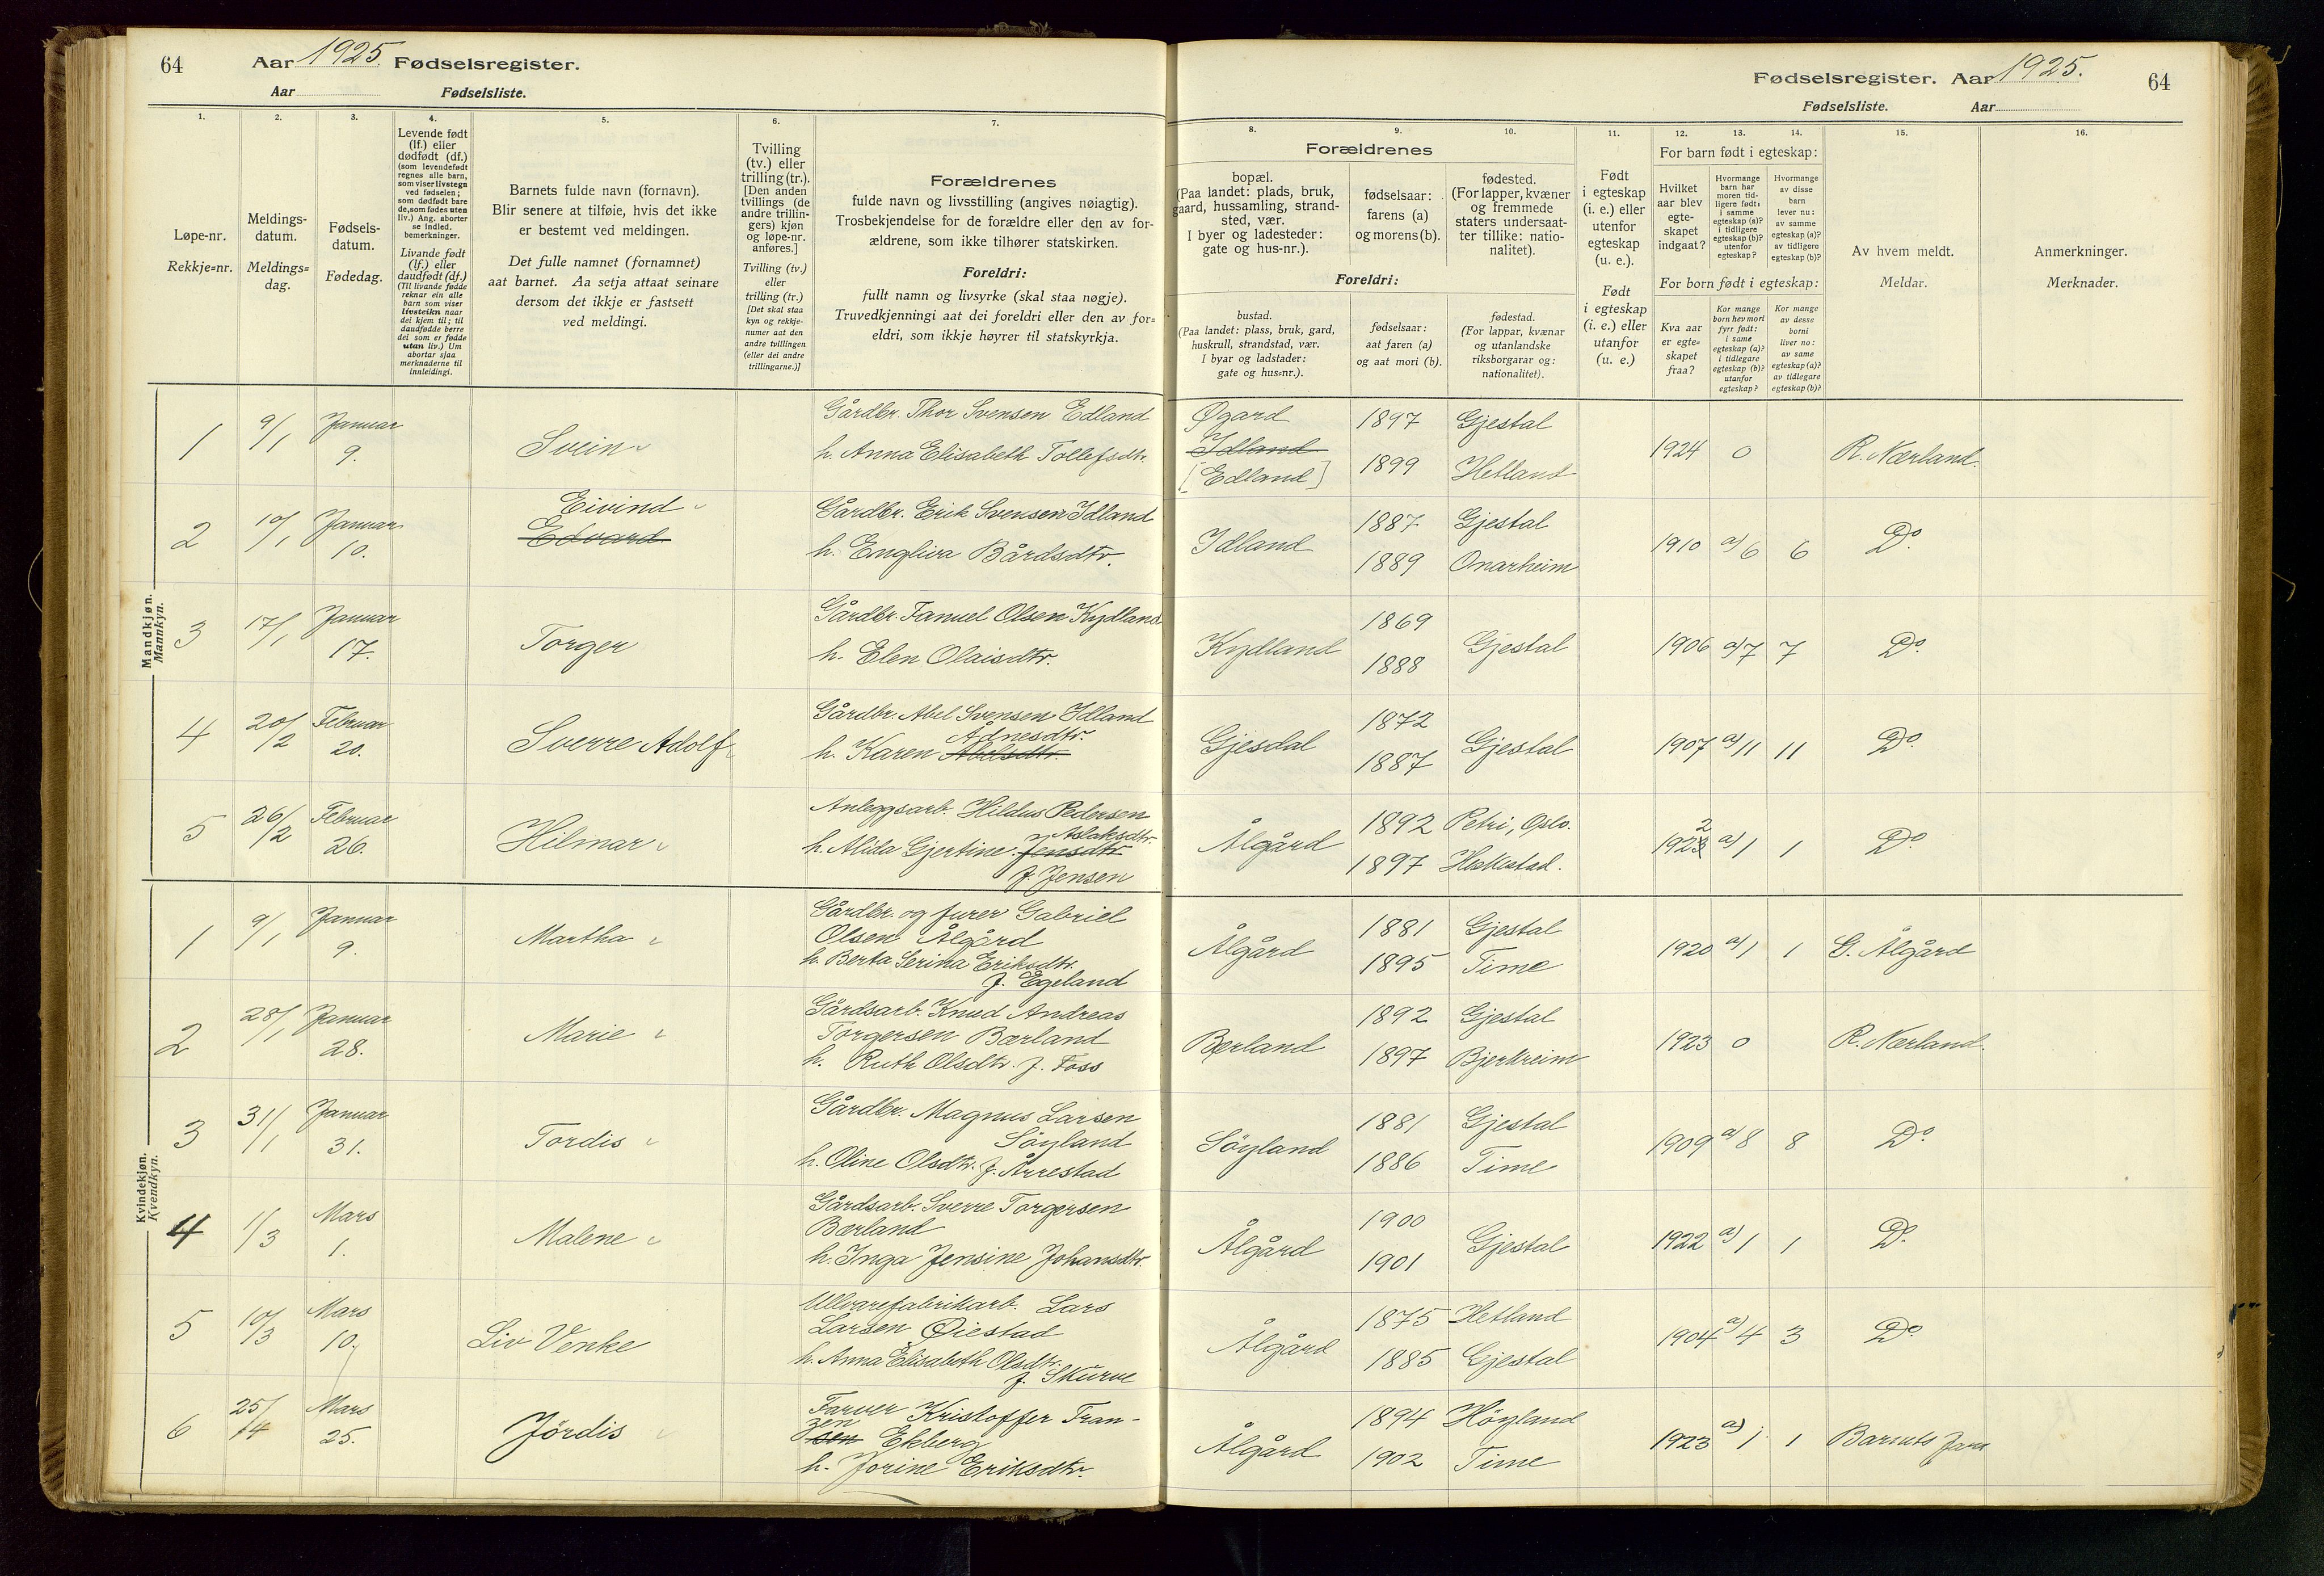 64 Aar 1925. Fødselsregister.
Aar Fødselsliste.
Fødselsregister. Aar 1925. 64
Fødselsliste. Aar
1. 2. 3. 4. 5. 6. 7. 8. 9. 10. 11. 12. 13. 14. 15. 16.
Løpe-nr.
Rekkje=nr.
Meldings-
datum.
Meldings=
dag.
Fødsels-
datum.
Fødedag.
Levende født
(lf.) eller
dødfødt (df.)
(som levendefødt
regnes alle barn,
som viser livstegn
ved fødselen;
som dødfødt bare
de, som fødes uten
liv.) Ang. aborter
se indled.
bemerkninger.
Livande født
(lf.) eller
daudfødt (df.)
(Til livande fødde
reknar ein alle
barn som viser
livsteikn naar
dei kjem til; til
daudfødde berre
dei som er fødde
utan liv.) Um
abortar sjaa
merknaderne til
innleidingi.
Barnets fulde navn (fornavn).
Blir senere at tilføie, hvis det ikke
er bestemt ved meldingen.
Det fulle namnet (fornamnet)
aat barnet. Aa setja attaat seinare
dersom det ikkje er fastsett
ved meldingi.
Tvilling
(tv.) eller
trilling (tr.).
[Den anden
tvillings (de
andre trillin-
gers) kjøn
og løpe-nr.
anføres.]
Tvilling (tv.)
eller
trilling (tr.)
[Det skal staa
kyn og rekkje-
numer aat den
andre tvillingen
(eller dei andre
trillingarne.)]
Forældrenes
fulde navn og livsstilling (angives nøiagtig).
Trosbekjendelse for de forældre eller den av for-
ældrene, som ikke tilhører statskirken.
Foreldri:
fullt namn og livsyrke (skal staa nøgje).
Truvedkjenningi aat dei foreldri eller den av for=
eldri, som ikkje høyrer til statskyrkja.
Forældrenes
bopæl.
(Paa landet: plads, bruk,
gaard, hussamling, strand-
sted, vær.
I byer og ladesteder:
gate og hus-nr.).
fødselsaar:
farens (a)
og morens (b).
fødested.
(For lapper, kvæner
og fremmede
staters undersaat-
ter tillike: natio-
nalitet).
Foreldri:
bustad.
(Paa landet: plass, bruk, gard,
huskrull, strandstad, vær.
I byar og ladstader:
gate og hus=nr.).
fødselsaar:
aat faren (a)
og aat mori (b).
fødestad.
(For lappar, kvænar
og utanlandske
riksborgarar og:
nationalitet).
Født
i egteskap
(i. e.) eller
utenfor
egteskap
(u. e.).
Født
i egteskap
(i. e.) eller
utanfor
(u. e.)
For barn født i egteskap:
Hvilket
aar blev
egte-
skapet
indgaat?
Hvormange
barn har
moren tid-
ligere født:
i samme
egteskap (a)?
i tidligere
egteskap (b)?
utenfor
egteskap?
Hvormange
av disse
barn
lever nu:
av samme
egteskap (a)?
av tidligere
egteskap (b)?
For born født i egteskap:
Kva aar
er egte=
skapet
fraa?
Kor mange
born hev mori
fyrr født:
i same
egteskap (a)?
i tidlegare
egteskap (b)?
utanfor
egteskap?
Kor mange
av desse
borni
liver no:
av same
egteskap (a)?
av tidlegare
egteskap (b)?
Av hvem meldt.
Meldar.
Anmerkninger.
Merknader.
Mandkjøn.
Mannkyn.
1 9/1 Januar 9. Svein Gårdbr. Thor Svensen Edland
h. Anna Elisabeth Tollefsdtr.
Øgard
Idland
[Edland] 1897 1899 Gjestal Hetland 1924 0 R. Nærland.
2 10/1 Januar 10. Eivind
Edvard
Gårdbr. Erik Svensen Idland
h. Engliva Bårdsdtr.
Idland 1887 1889 Gjestal Onarheim 1910 a) 6 6 Do.
3 17/1 Januar 17. Torger Gårdbr. Fanuel Olsen Kydland
h. Elen Olaisdtr.
Kydland 1869 1888 Gjestal 1906 a) 7 7 Do.
4 20/2 Februar 20. Sverre Adolf Gårdbr. Abel Svensen Idland
Ådnesdtr.
h. Karen Abelsdtr.
Gjesdal 1872 1887 Gjestal 1907 a) 11 11 Do.
5 26/2 Februar 26. Hilmar Anleggsarb. Hildus Pedersen
Aslaksdtr.
h. Alida Gjertine Jensdtr
f. Jensen
Ålgård 1892 1897 Petri, Oslo. Heskestad. 1923 2 a) 1 1 Do
Kvindekjøn.
Kvendkyn.
1 9/1 Januar 9. Martha Gårdbr. og furer Gabriel
Olsen Ålgård
h. Berta Serina Eriksdtr.
f. Egeland
Ålgård 1881 1895 Gjestal Time 1920 a) 1 1 G. Ålgård
2 28/1 Januar 28. Marie Gårdsarb. Knud Andreas
Torgersen Bærland
h. Ruth Olsdtr. f. Foss
Bærland 1892 1897 Gjestal Bjerkreim 1923 0 R. Nærland.
3 31/1 Januar 31. Tordis Gårdbr. Magnus Larsen
Söyland
h. Oline Olsdtr. f. Årrestad
Söyland 1881 1886 Gjestal Time 1909 a) 8 8 Do.
4 1/3 Mars 1. Malene Gårdsarb. Sverre Torgersen
Bærland
h. Inga Jensine Johansdtr.
Ålgård 1900 1901 Gjestal 1922 a) 1 1 Do.
5 10/3 Mars 10. Liv Venke Ullvarefabrikarb. Lars
Larsen Øiestad
h. Anna Elisabeth Olsdtr.
f. Skurve
Ålgård 1875 1885 Hetland Gjestal 1904 a) 4 3 Do
6 25/4 Mars 25. Jördis Farver Kristoffer Fran-
zen
sen Ekberg
h. Jorine Eriksdtr.
Ålgård 1894 1902 Höyland Time 1923 a) 1 1 Barnets